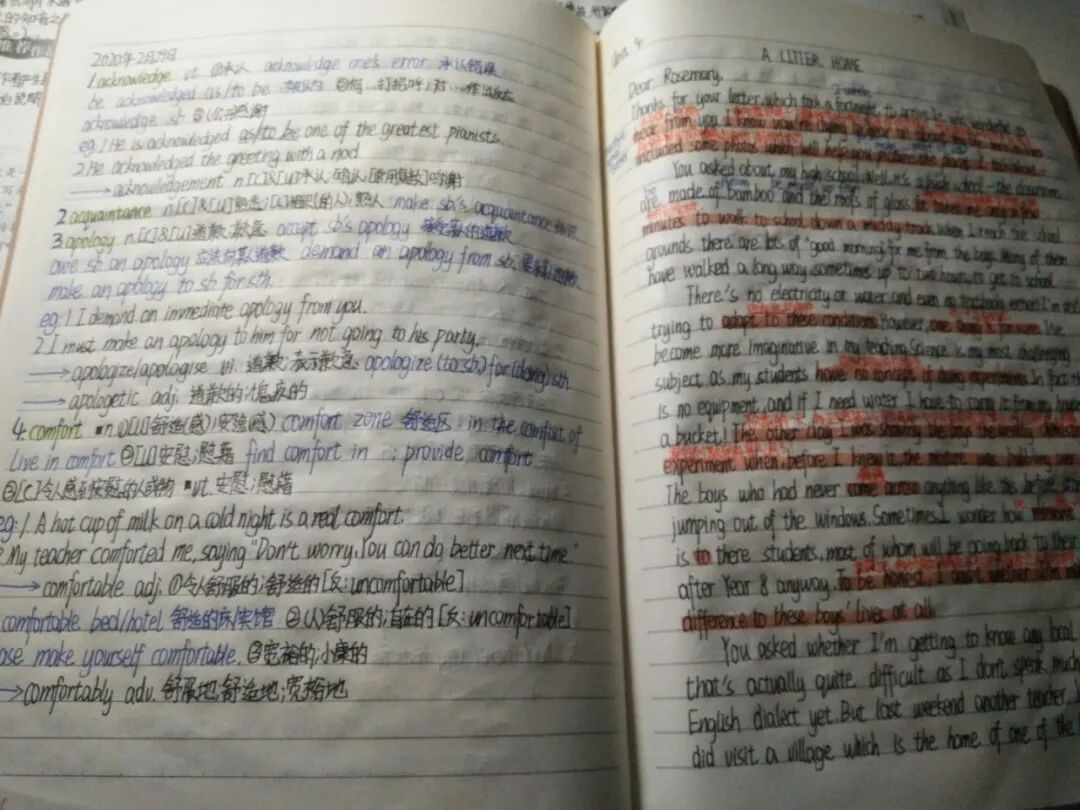 2020年2月29日
1 acknowledge vt. ①承认 acknowledge one's error 承认错误
be acknowledged as/to be
acknowledge sb ③(公开)感谢
eg: 1 He is acknowledged as/to be one of the greatest pianists.
2. He acknowledged the greeting with a nod.
→ acknowledgement n.[C]&[U]承认;确认;[常用复数]鸣谢
2 acquaintance n.[C]&[U] make sb's acquaintance
3 apology n.[C]&[U]道歉;歉意 accept sb's apology 接受某人的道歉
owe sb an apology 应该向某人道歉 demand an apology from sb.
make an apology to sb for sth.
eg: 1 I demand an immediate apology from you.
2. I must make an apology to him for not going to his party.
→ apologize/apologise vi. 道歉;表示歉意 apologize (to sb) for (doing) sth
→ apologetic adj. 道歉的;愧疚的
4. comfort ▪n.①[U]舒适(感)安逸(感) comfort zone 舒适区 in the comfort of
live in comfort ②[U]安慰;慰藉 find comfort in ; provide comfort
③[C]令人感到安慰的人或物 ▪vt. 安慰;慰藉
eg: 1. A hot cup of milk on a cold night is a real comfort.
My teacher comforted me, saying "Don't worry. You can do better next time."
→ comfortable adj. ①令人舒服的;舒适的[反:uncomfortable]
comfortable bed/hotel 舒适的床/宾馆 ②(人)舒服的;自在的[反:uncomfortable]
make yourself comfortable. ③宽裕的;小康的
→ comfortably adv. 舒服地;舒适地;宽裕地
A LETTER HOME
Dear Rosemary,
Thanks for your letter, which took a fortnight to arrive. It was wonderful to
hear from you. I know you're
included some photos which will help you picture the places I
You asked about my high school. Well, it's a bush school – the classrooms
are made of bamboo and the roofs of glass. It takes me only a few
minutes to walk to school down a muddy track. When I reach the school
grounds there are lots of "good mornings" for me from the boys. Many of them
have walked a long way, sometimes up to two hours, to get to school.
There's no electricity or water and even no textbooks either! I'm still
trying to adapt to these conditions. However, one thing is for sure, I've
become more imaginative in my teaching. Science is my most challenging
subject as my students have no concept of doing experiments. In fact there
is no equipment, and if I need water I have to carry it from my house
a bucket! The other day I was showing the boys the weekly chemistry
experiment when, before I knew it, the mixture was bubbling over
The boys who had never come across anything like this before started
jumping out of the windows. Sometimes I wonder how relevant
is to these students, most of whom will be going back to their
after Year 8 anyway. To be honest, I doubt whether I'm making
difference to these boys' lives at all.
You asked whether I'm getting to know any local
that's actually quite difficult as I don't speak much
English dialect yet. But last weekend another teacher,
did visit a village which is the home of one of the